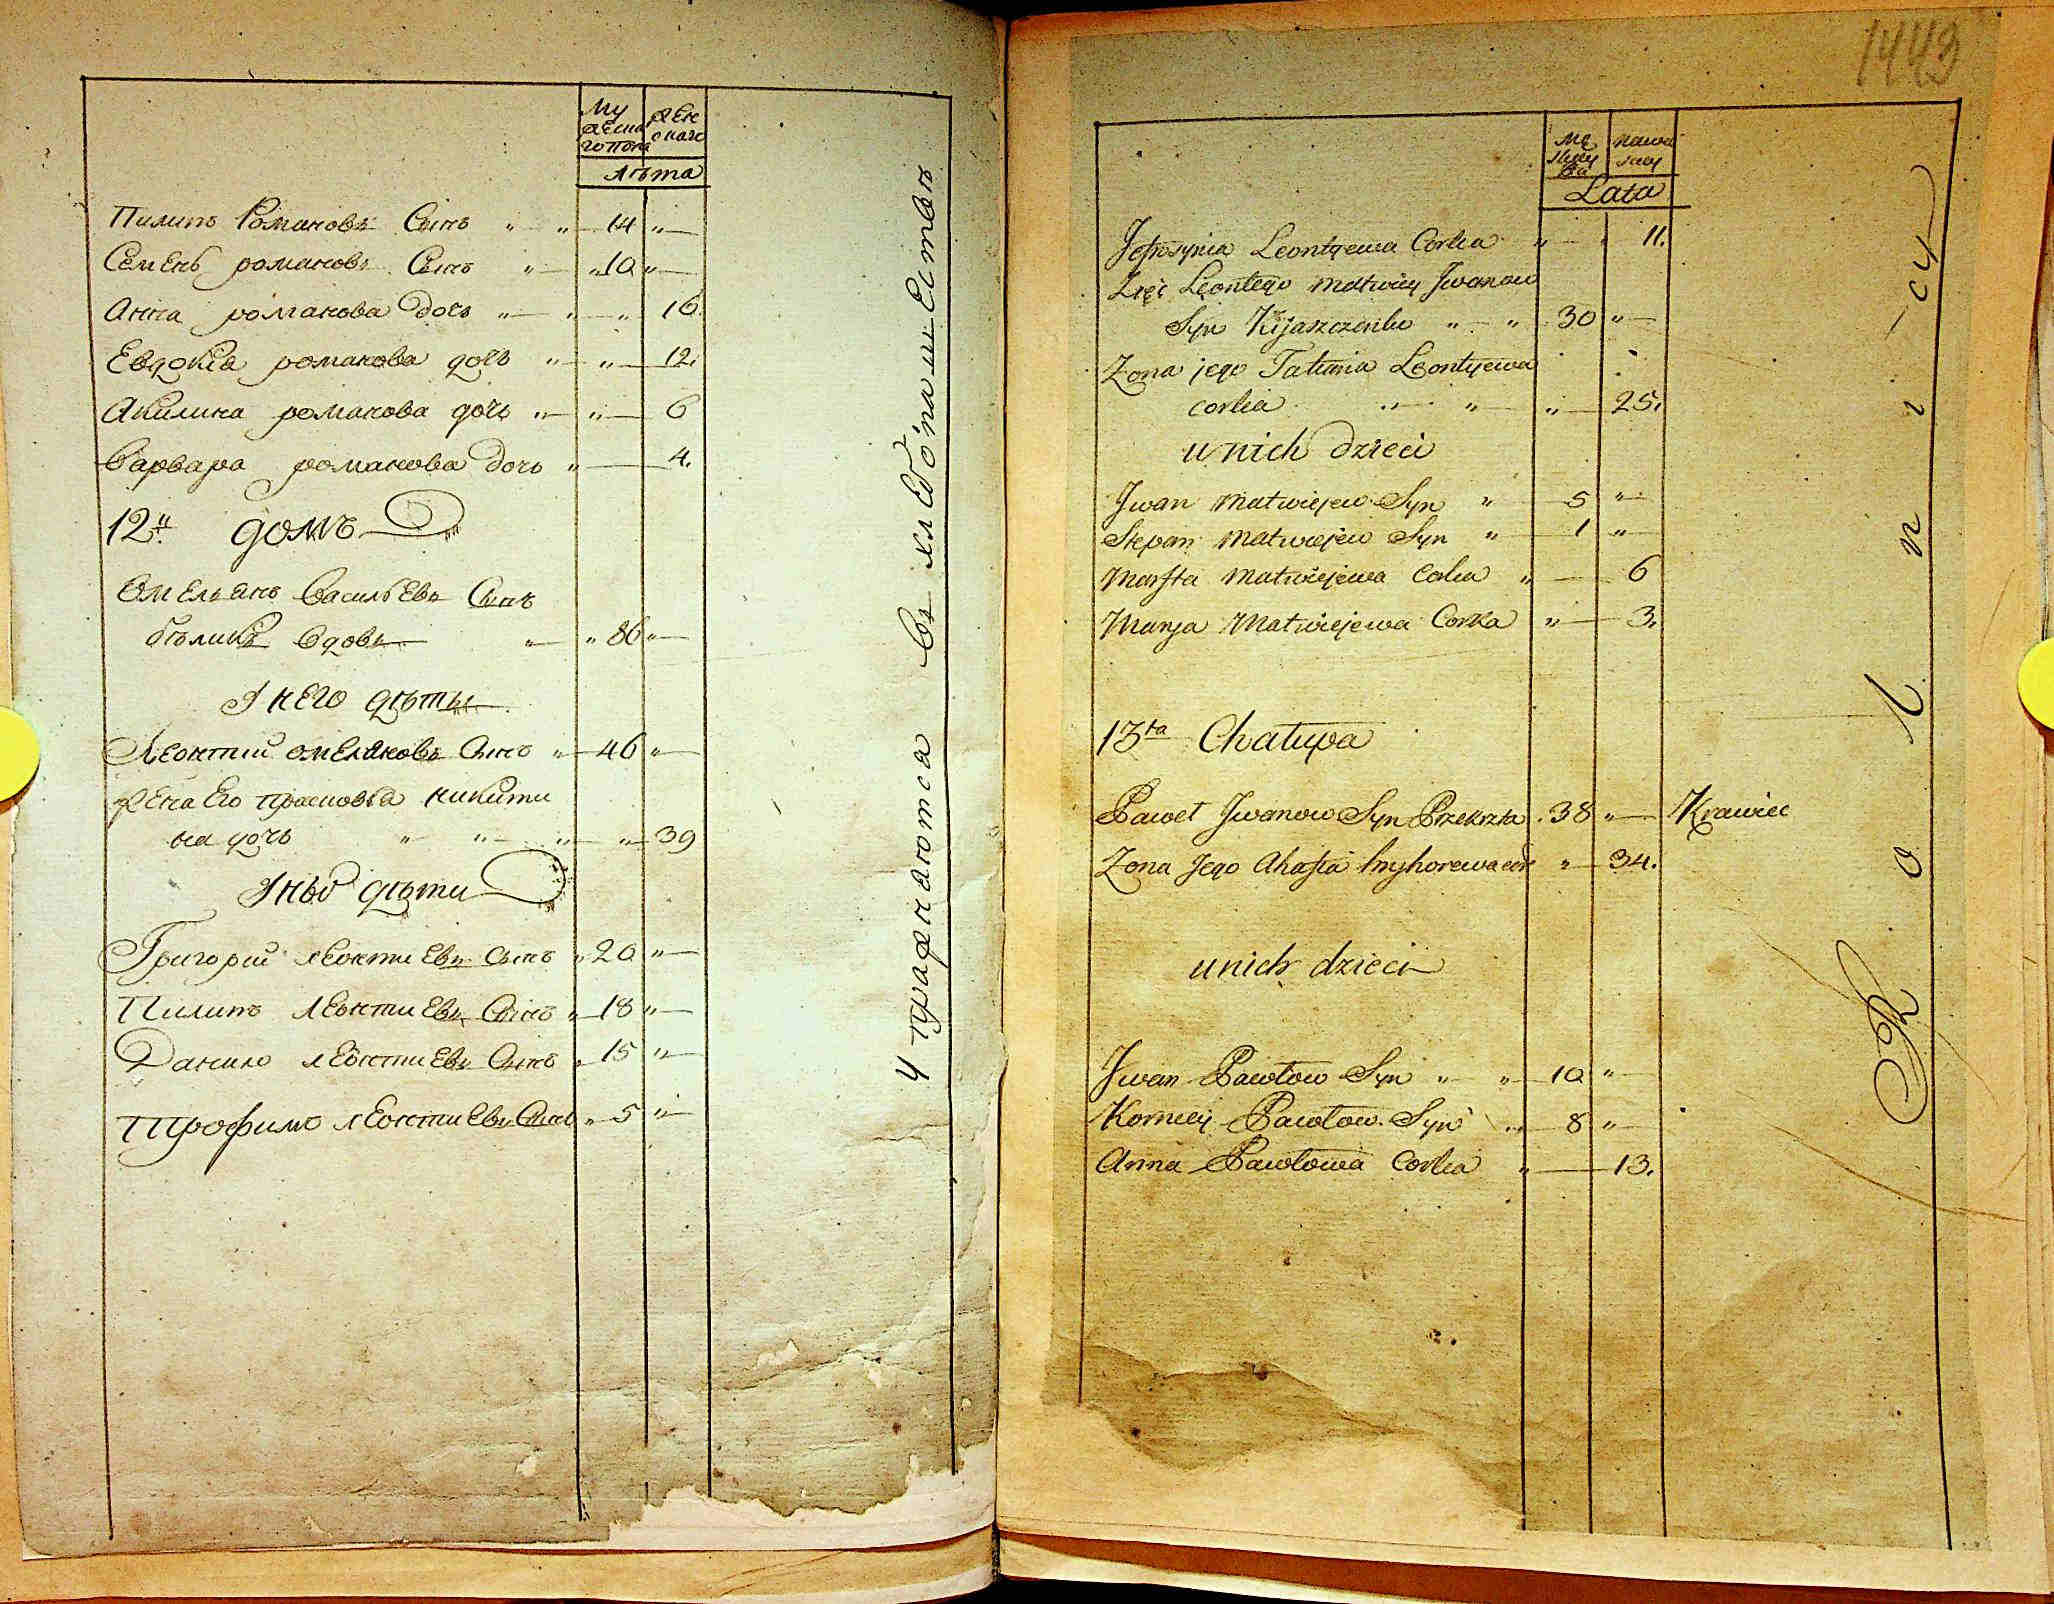 Му
жеска
го пола
жен
скаго
лѣта
Пилипъ Романовъ Сынъ " " 14 "
Семенъ романовъ Сынъ " " 10 "
Анна романова дочь " " " 16.
Евдокія романова дочь " " 12.
Акилина романова дочь " " 6
Варвара романова дочь " 4.
12й домъ
Омельянъ Васильевъ Сынъ
вдовъ " " 86 "
У него дѣты
Леонтий омеляновъ Сынъ " 46 "
жена Его прасковія никити
на дочь " " " " 39
У нъ дѣти
Григорий леонтиевъ Сынъ " 20 "
Пилипъ леонтиевъ Сынъ " 18 "
Данило леонтиевъ Сынъ " 15 "
Трофимъ леонтиевъ Сынъ " 5 "
упражняются въ хлебопашествѣ
1443
Lata
Jefrosynia Leontyewa Corka " " 11.
Zięć Leontego Matwiey Jwanow
Syn Kijaszczenko " " 30 "
Zona jego Tatiania Leontyewa
corka " " " 25.
u nich dzieci
Jwan Matwiejew Syn " 5 "
Stepan Matwiejew Syn " 1 "
Marfta Matwiejewa Corka " 6
Marya Matwiejewa Corka " 3.
13ta Chałupa
Paweł Jwanow Syn 38 " Krawiec
Zona Jego Ahafia Hryhorewa cor " 34.
u nich dzieci
Jwan Pawłow Syn " " 10 "
Korniey Pawłow Syn " 8 "
Anna Pawłowa Corka " 13.
Rolnicy